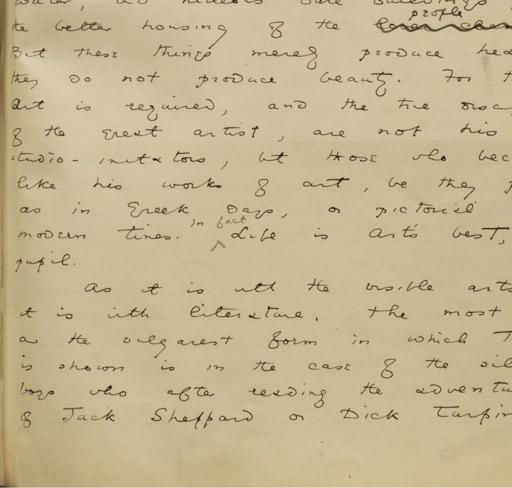 the better housing of the people
But these things merely produce hea
they do not produce beauty. For t
Art is required, and the true disc
of the great artist, are not his
studio-imitators, but those who bec
like his works of art, be they p
as in Greek days, or pictorial
modern times. In fact Life is Art's best,
pupil.
As it is with the visible arts
it is with literature. The most
as the vulgarest form in which t
is shown is in the case of the sil
boys who after reading the adventu
of Jack Sheppard or Dick Turpin